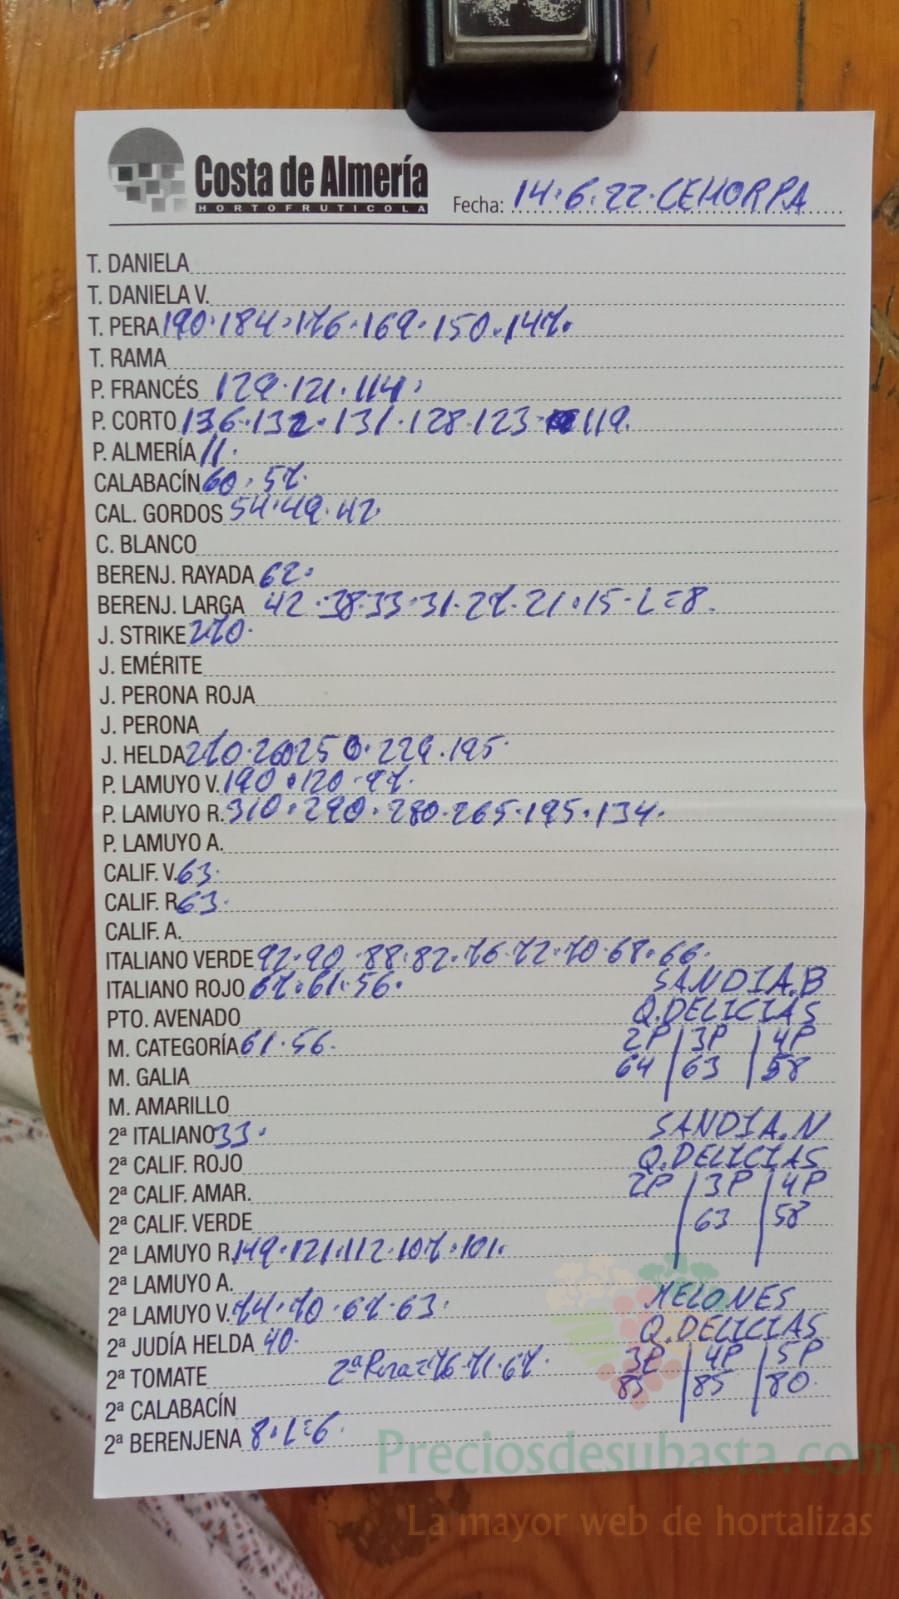 Costa de Almería
HORTOFRUTICOLA
Fecha: 14.6.22.CEHORPA
T. DANIELA
T. DANIELA V.
T. PERA 190.184.176.169.150.147.
T. RAMA
P. FRANCÉS 129.121.114.
P. CORTO 136.132.131.128.123.119.
P. ALMERÍA 11.
CALABACÍN 60.57.
CAL. GORDOS 54.49.42
C. BLANCO
BERENJ. RAYADA 62.
BERENJ. LARGA 42.38.33.31.27.21.15-L=8.
J. STRIKE 270.
J. EMÉRITE
J. PERONA ROJA
J. PERONA
J. HELDA 270.260.250.229.195.
P. LAMUYO V. 190.120.97.
P. LAMUYO R. 310.290.280.265.195.134.
P. LAMUYO A.
CALIF. V. 63.
CALIF. R. 63.
CALIF. A.
ITALIANO VERDE 92.90.88.82.76.72.70.68.66.
ITALIANO ROJO 67.61.56.
PTO. AVENADO
M. CATEGORÍA 61.56.
M. GALIA
M. AMARILLO
2ª ITALIANO 33.
2ª CALIF. ROJO
2ª CALIF. AMAR.
2ª CALIF. VERDE
2ª LAMUYO R. 149.121.112.107.101.
2ª LAMUYO A.
2ª LAMUYO V. 74.70.67.63.
2ª JUDÍA HELDA 40.
2ª TOMATE 2ª Pera=76.71.67.
2ª CALABACÍN
2ª BERENJENA 8.L=6.
SANDIA.B
Q.DELICIAS
2P 3P 4P
64 63 58
SANDIA.N
Q.DELICIAS
2P 3P 4P
63 58
MELONES
Q.DELICIAS
3P 4P 5P
85 85 80.
Preciosdesubasta.com
La mayor web de hortalizas